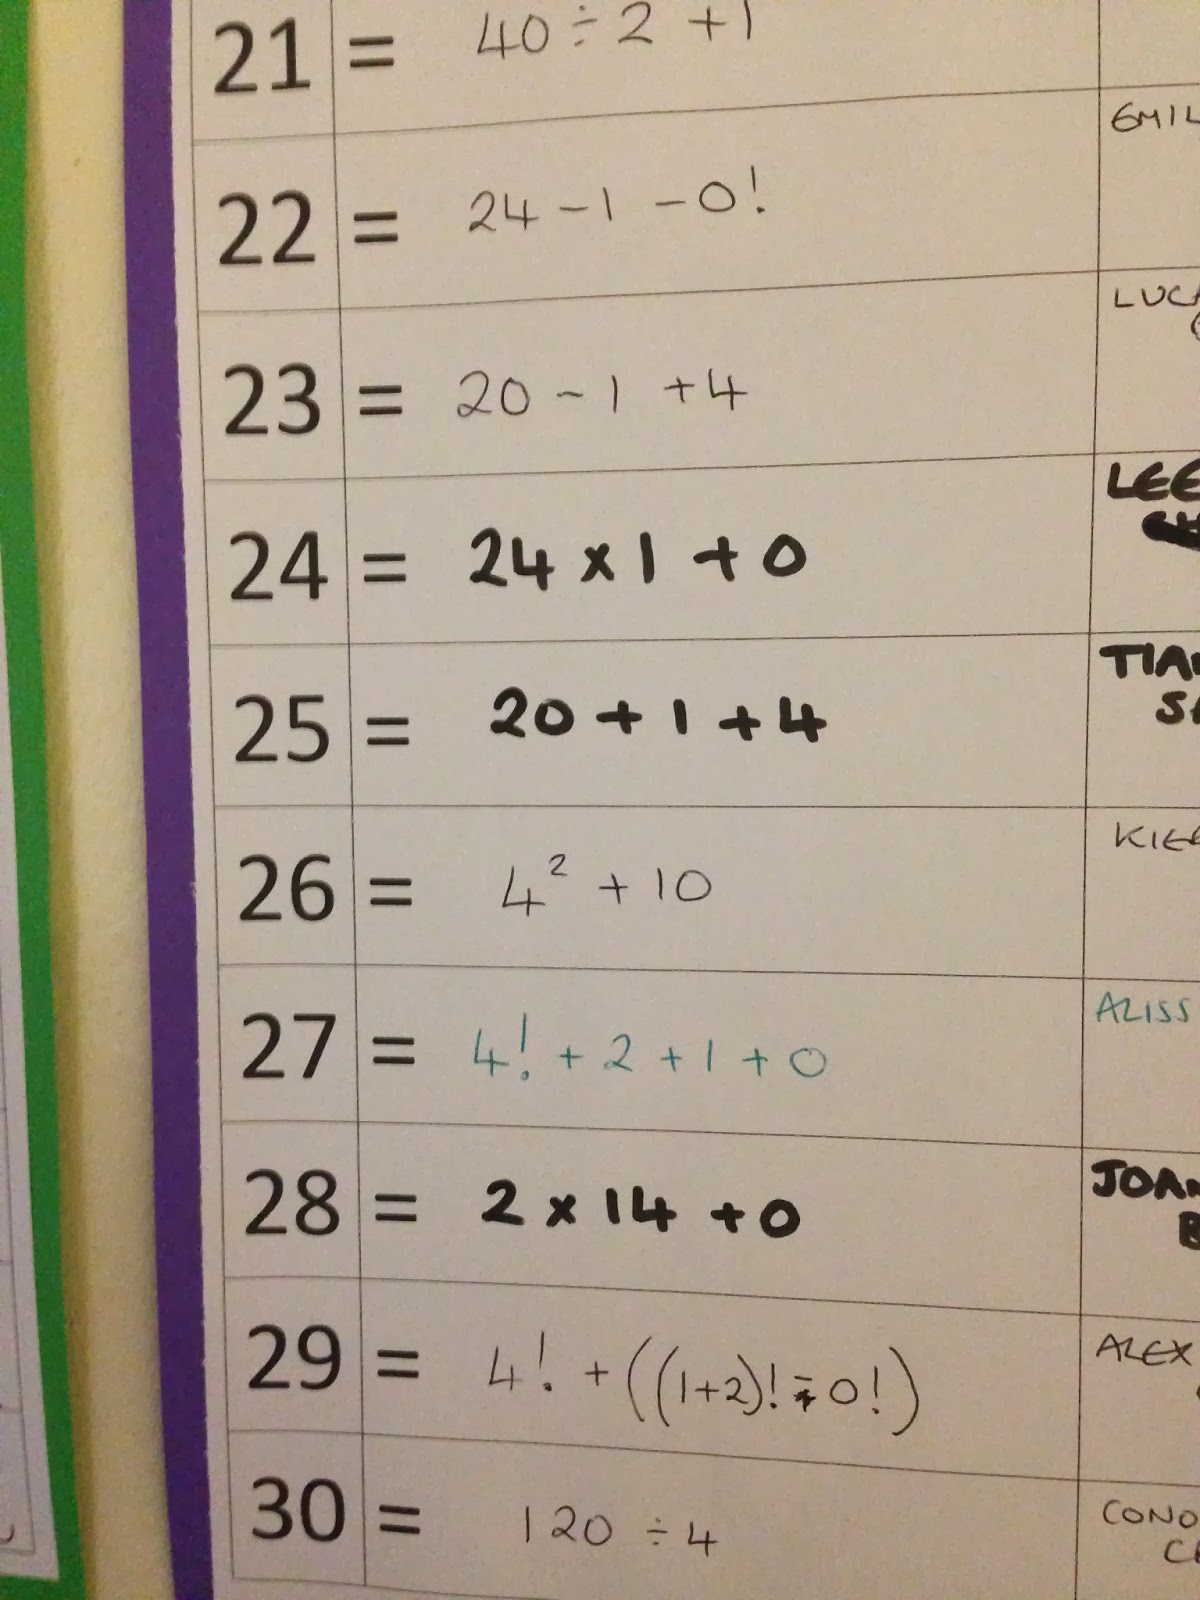 21 = 40 ÷ 2 + 1
22 = 24 - 1 - 0! EMIL
23 = 20 - 1 + 4 LUCA
24 = 24 x 1 + 0 LEE
25 = 20 + 1 + 4 TIAN
26 = 4² + 10 KIE
27 = 4! + 2 + 1 + 0 ALISS
28 = 2 x 14 + 0 JOAN
B
29 = 4! + ((1+2)! - 0!) ALEX
30 = 120 ÷ 4 CONO